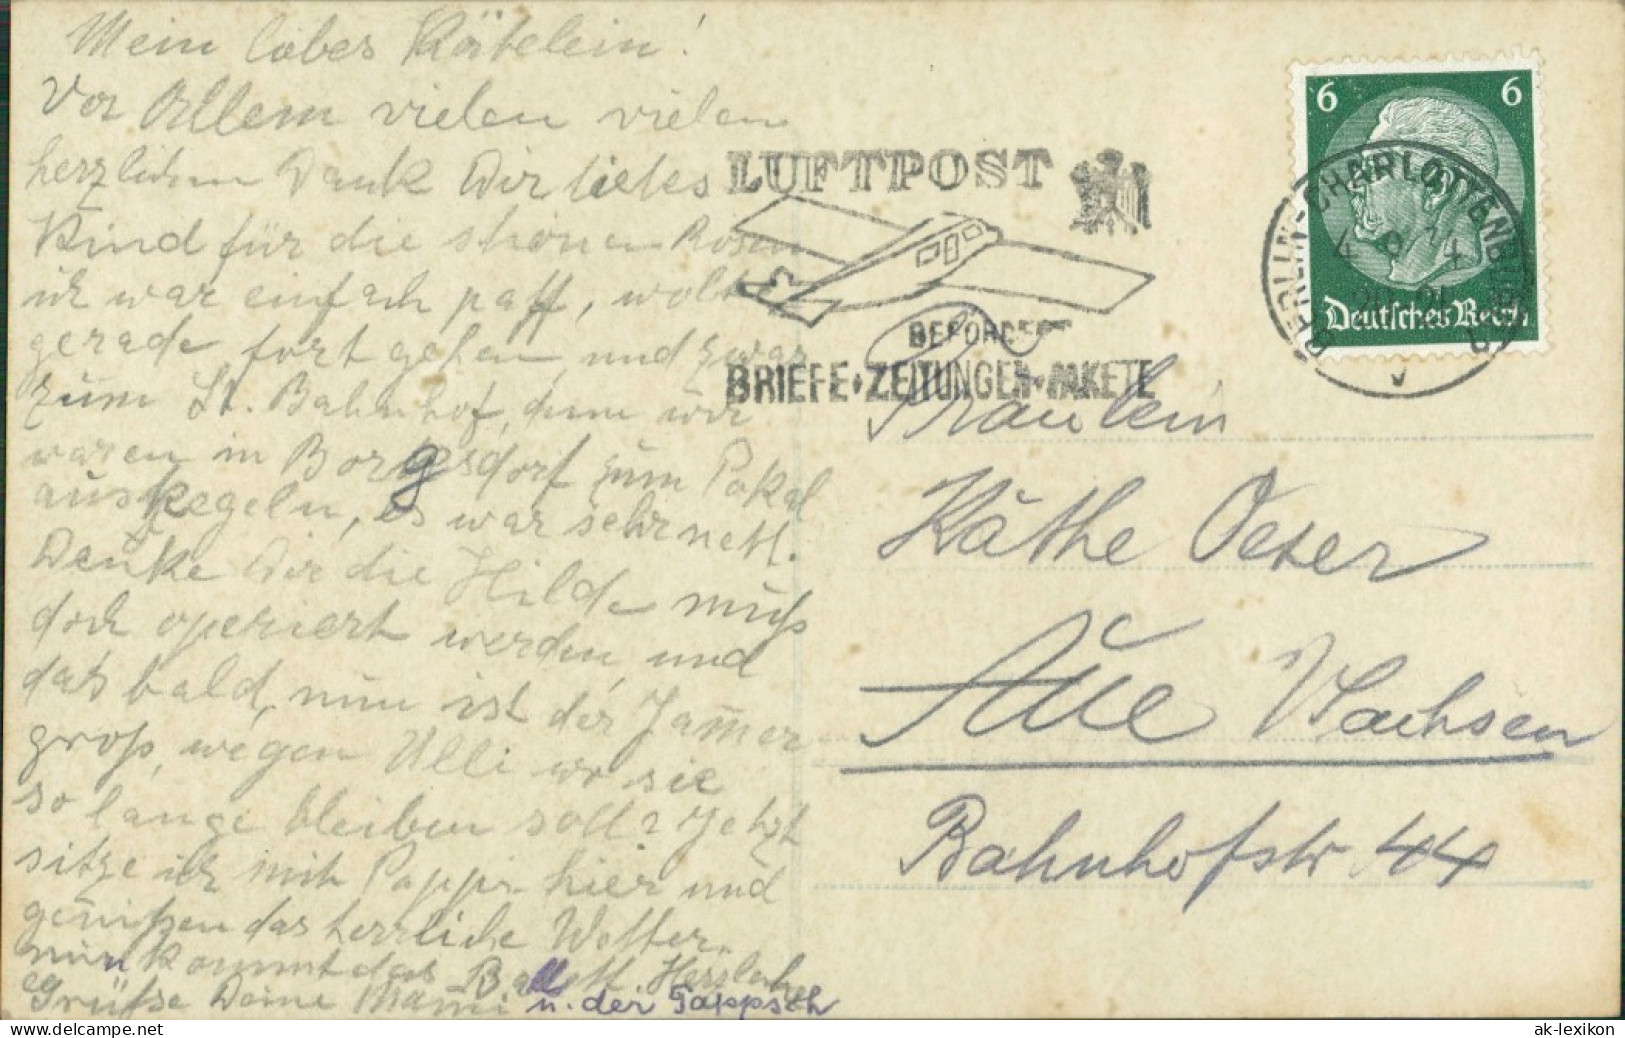 Mein liebes Kätelein!
Vor Allem vielen vielen
herzlichen Dank Dir liebes
Kind für die schönen Rosen
ich war einfach paff, wollte
gerade fort gehen und zwar
zum St. Bahnhof, denn wir
waren in Borgsdorf zum Pokal
auskegeln, es war sehr nett.
Denke Dir die Hilde muß
doch operiert werden, und
das bald, nun ist der Jam̄er
groß, wegen Ulli wo sie
so lange bleiben soll? Jetzt
sitze ich mit Pappi hier und
genißen das herrliche Wetter.
nun kommt das Ballett. Herzliche
Grüße Deine Mami u. der Pappsch
LUFTPOST
BEFÖRDERT
BRIEFE·ZEITUNGEN·PAKETE
6 6
Deutsches Reich
BERLIN-CHARLOTTENBURG
Fräulein
Käthe Oeser
Aue Sachsen
Bahnhofstr 44
ak-lexikon
© the-best-seller.delcampe.net